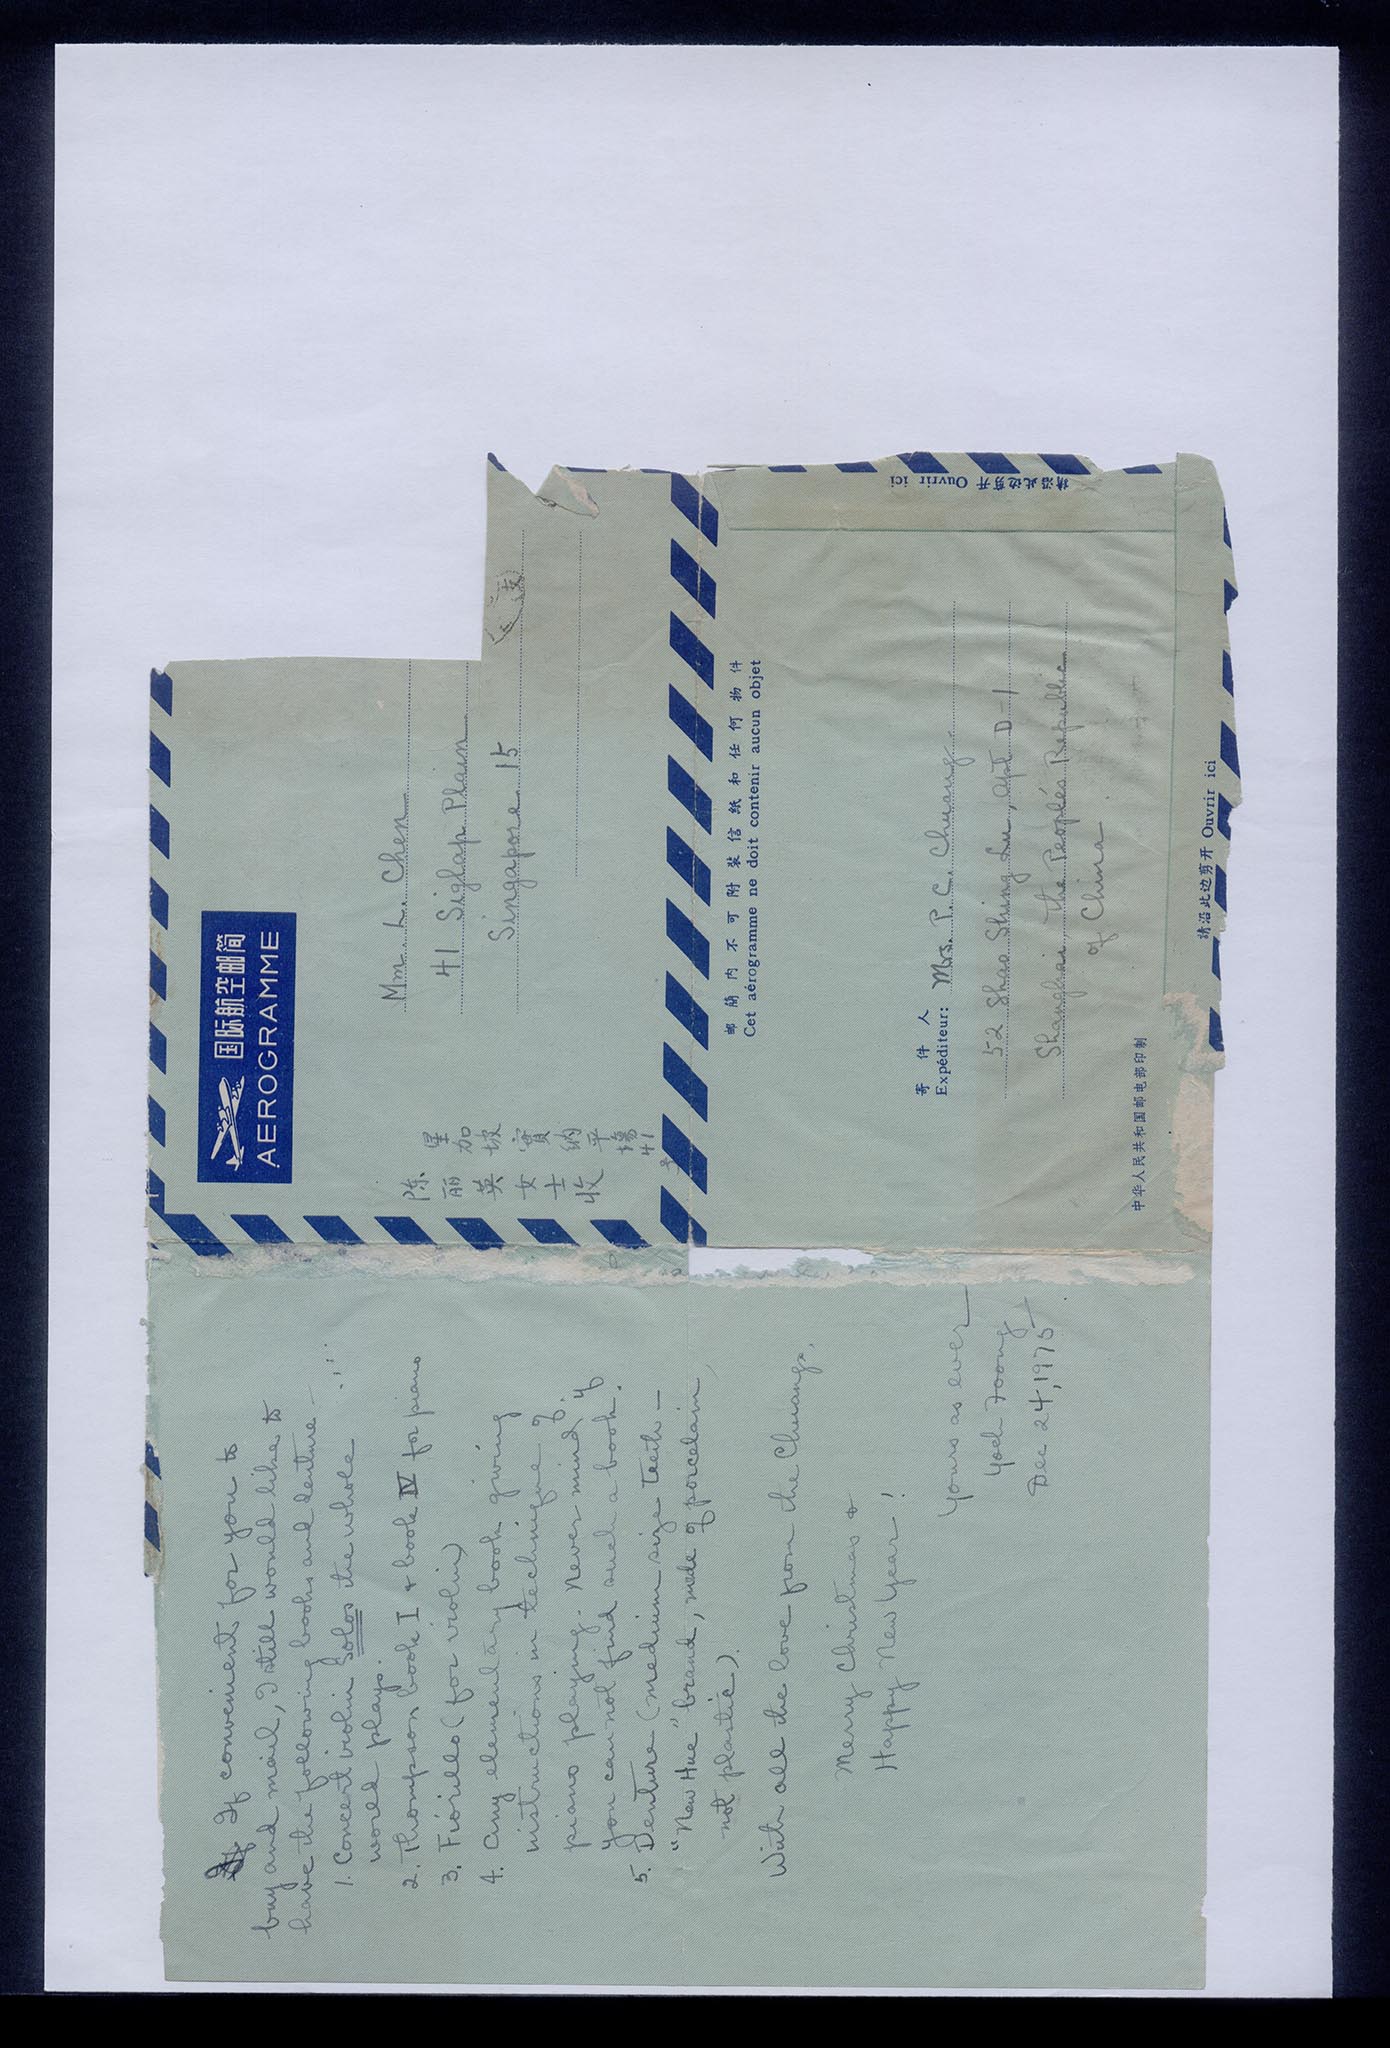 If convenient for you to
buy and mail, I still would like to
have the following books and denture —
1. Concert violin Solos the whole
world plays.
2. Thompson book I & book IV for piano
3. Fiorillo (for violin)
4. Any elementary book giving
instructions in technique of
piano playing. Never mind, if
you can not find such a book.
5. Denture (medium size teeth —
"New Hue" brand, made of porcelain,
not plastic).
With all the love from the Chuangs,
Merry Christmas &
Happy New Year!
Yours as ever
Yoch Foong
Dec 24, 1975
国际航空邮简
AEROGRAMME
Mm. L. Chen
41 Siglap Plain
Singapore 15
星加坡實納平場41号
陈丽英女士收
邮简内不可附装信纸和任何物件
Cet aérogramme ne doit contenir aucun objet
寄件人
Expéditeur: Mrs. P. C. Chuang.
52 Shao Shing Lu, Apt D-1
Shanghai, the People's Republic
of China
中华人民共和国邮电部印制
請沿此边剪开 Ouvrir ici
請沿此边剪开 Ouvrir ici